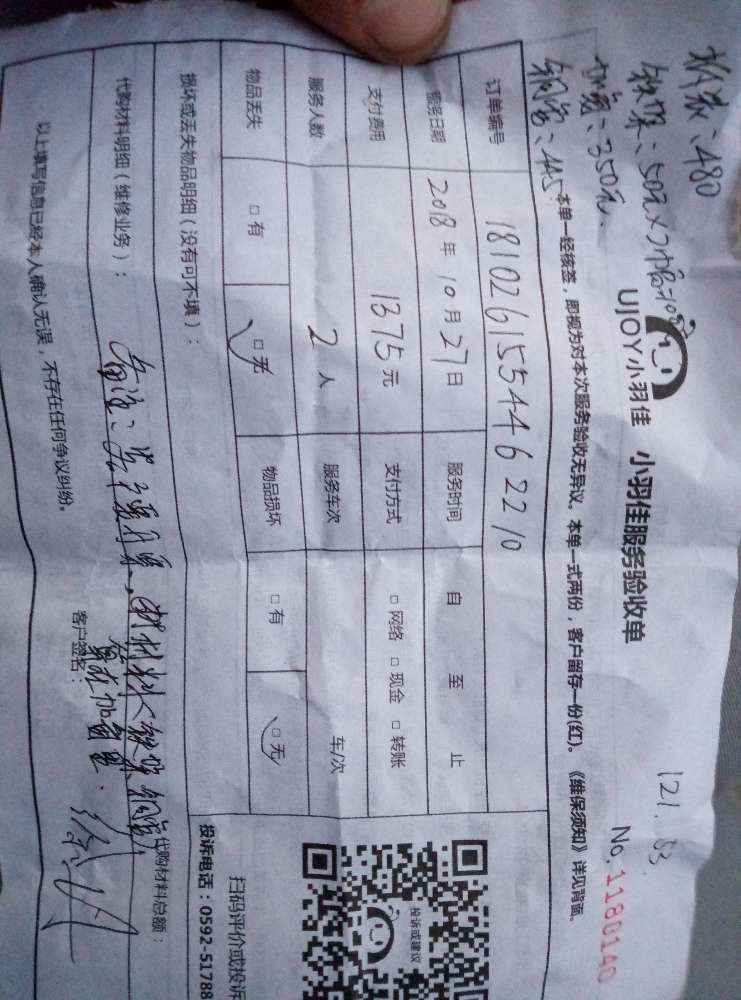 拆装：480
铁架：50元×2个=100
加氟：350元.
铜管：445
UJOY小羽佳 小羽佳服务验收单
121.53
No.1180140
本单一经核签，即视为对本次服务验收无异议。本单一式两份，客户留存一份(红)。《维保须知》详见背面。
订单编号 18102615544622 10
服务日期 2018年10月27日 服务时间 自 至 止
支付费用 1375元 支付方式 □网络 □现金 □转账
服务人数 2人 服务车次 车/次
物品丢失 □有 □无 物品损坏 □有 □无
损坏或丢失物品明细（没有可不填）：
代购材料明细（维修业务）：
代购材料总额：
以上填写信息已经本人确认无误，不存在任何争议纠纷。
客户签名：
投诉或建议
UJOY
扫码评价或投诉
投诉电话：0592-51788